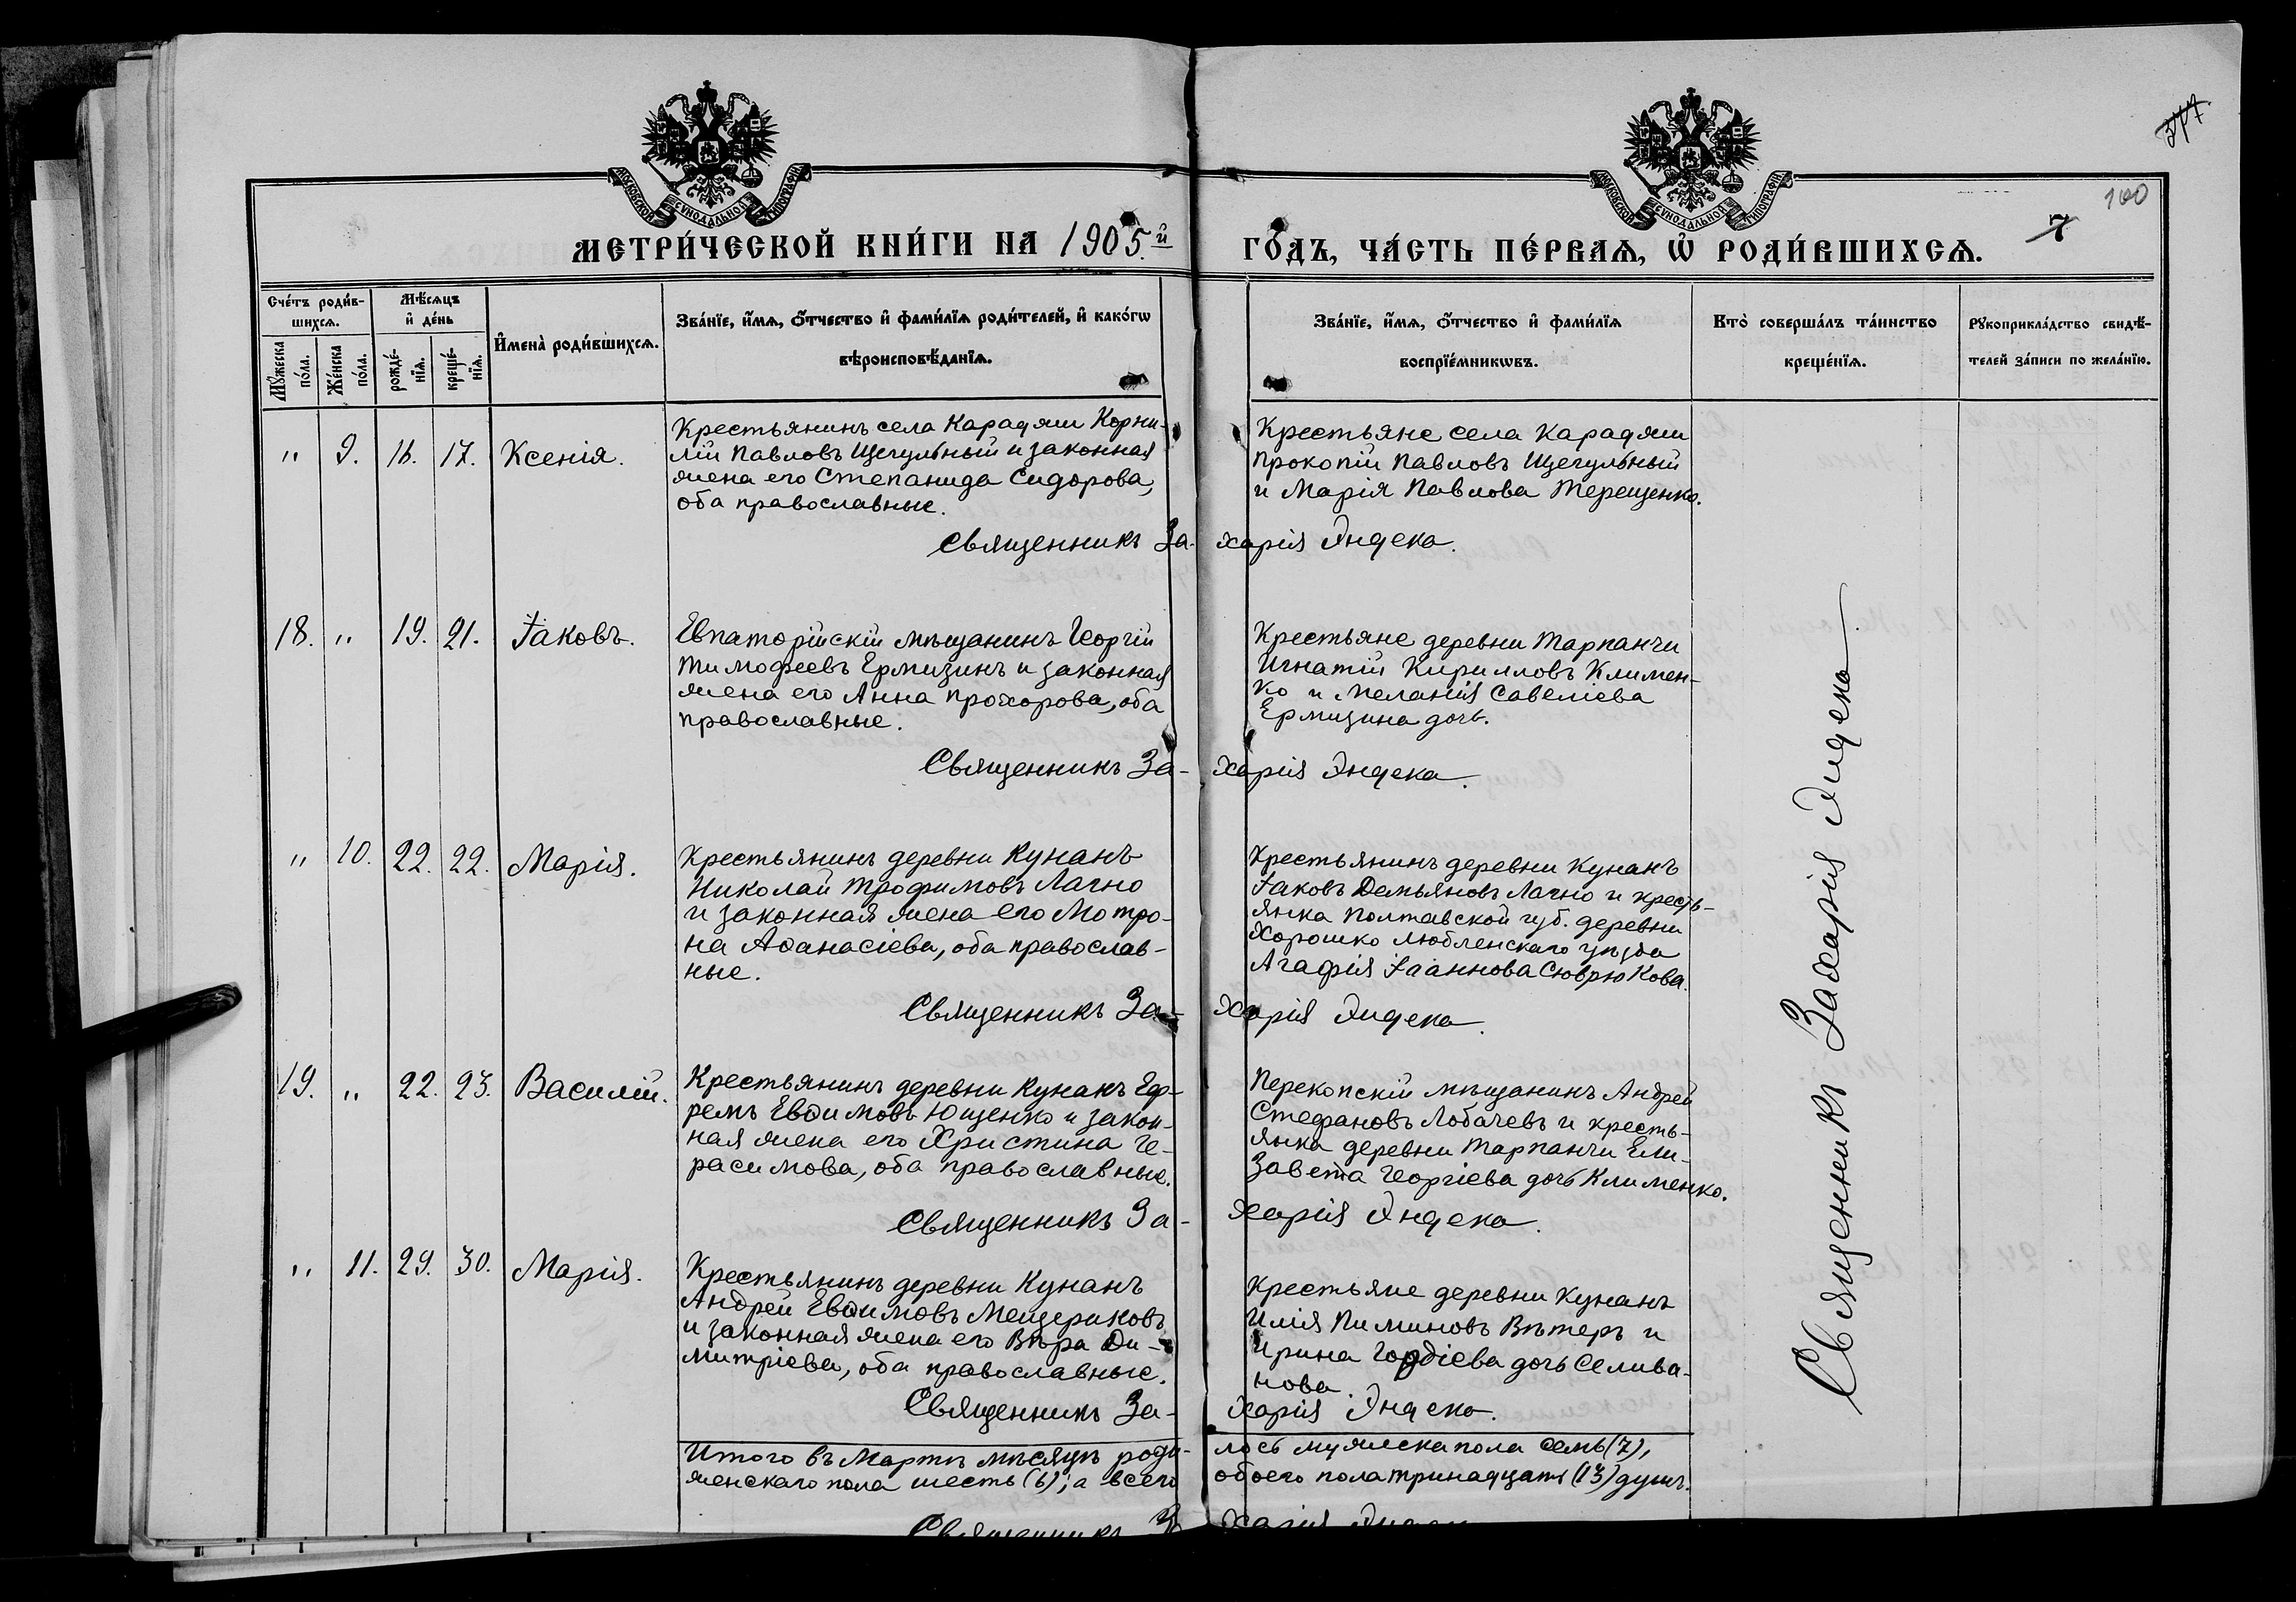 377
100
7
МОСКОВСКОЙ СѴНОДАЛЬНОЙ ТИПОГРАФІИ
МОСКОВСКОЙ СѴНОДАЛЬНОЙ ТИПОГРАФІИ
МЕТРИ́ЧЕСКОЙ КНИ́ГИ НА 1905.й ГО́ДЪ, ЧА́СТЬ ПЕ́РВАѦ, Ѡ҆ РОДИ́ВШИХСѦ.
Сче́тъ роди́в-
шихсѧ.
Мꙋ́жеска по́ла.
Же́нска по́ла.
Мѣ́сѧцъ
и҆ де́нь
рожде́-
нїѧ.
креще́-
нїѧ.
И҆мена̀ роди́вшихсѧ.
Зва́нїе, и҆́мѧ, ѻ҆́тчество и҆ фами́лїѧ роди́телей, и҆ како́гѡ
вѣроисповѣ́данїѧ.
Зва́нїе, и҆́мѧ, ѻ҆́тчество и҆ фами́лїѧ
воспрїе́мникѡвъ.
Кто̀ соверша́лъ та́инство
креще́нїѧ.
Рꙋкоприкла́дство свидѣ́-
телей за́писи по жела́нїю.
" 9. 16. 17. Ксенія.
Крестьянинъ села Караджи Корни-
лій Павловъ Щегульный и законная
жена его Степанида Сидорова,
оба православные.
Крестьяне села Караджи
Прокопій Павловъ Щегульный
и Марія Павлова Терещенко.
Священникъ Захарія Яндека.
18. " 19. 21. Іаковъ.
Евпаторійскій мѣщанинъ Георгій
Тимофеевъ Ермизинъ и законная
жена его Анна Прохорова, оба
православные.
Крестьяне деревни Тарпанчи
Игнатій Кирилловъ Климен-
ко и Меланія Савеліева
Ермизина дочь.
Священникъ За- харія Яндека.
" 10. 22. 22. Марія.
Крестьянинъ деревни Кунанъ
Николай Трофимовъ Лагно
и законная жена его Мотро-
на Аѳанасіева, оба православ-
ные.
Крестьянинъ деревни Кунанъ
Іаковъ Демьяновъ Лагно и кресть-
янка Полтавской губ. деревни
Хорошко Любленскаго уѣзда
Агафія Іоаннова Сюврюкова.
Священникъ За- харія Яндека.
19. " 22. 23. Василій.
Крестьянинъ деревни Кунанъ Еф-
ремъ Евѳимовъ Ющенко и закон-
ная жена его Христина Ге-
расимова, оба православные.
Перекопскій мѣщанинъ Андрей
Стефановъ Лобачевъ и кресть-
янка деревни Тарпанчи Ели-
завета Георгіева дочь Клименко.
Священникъ За- харія Яндека.
" 11. 29. 30. Марія.
Крестьянинъ деревни Кунанъ
Андрей Евѳимовъ Мещериковъ
и законная жена его Вѣра Ди-
митріева, оба православные.
Крестьяне деревни Кунанъ
Илія Пиминовъ Вѣтеръ и
Ирина Гордіева дочь Селива-
нова.
Священникъ За- харія Яндека.
Итого въ Мартѣ мѣсяцѣ роди- лось мужеска пола семь (7),
женскаго пола шесть (6), а всего обоего пола тринадцать (13) душъ.
Священникъ За харія Яндека
Священникъ Захарія Яндека.